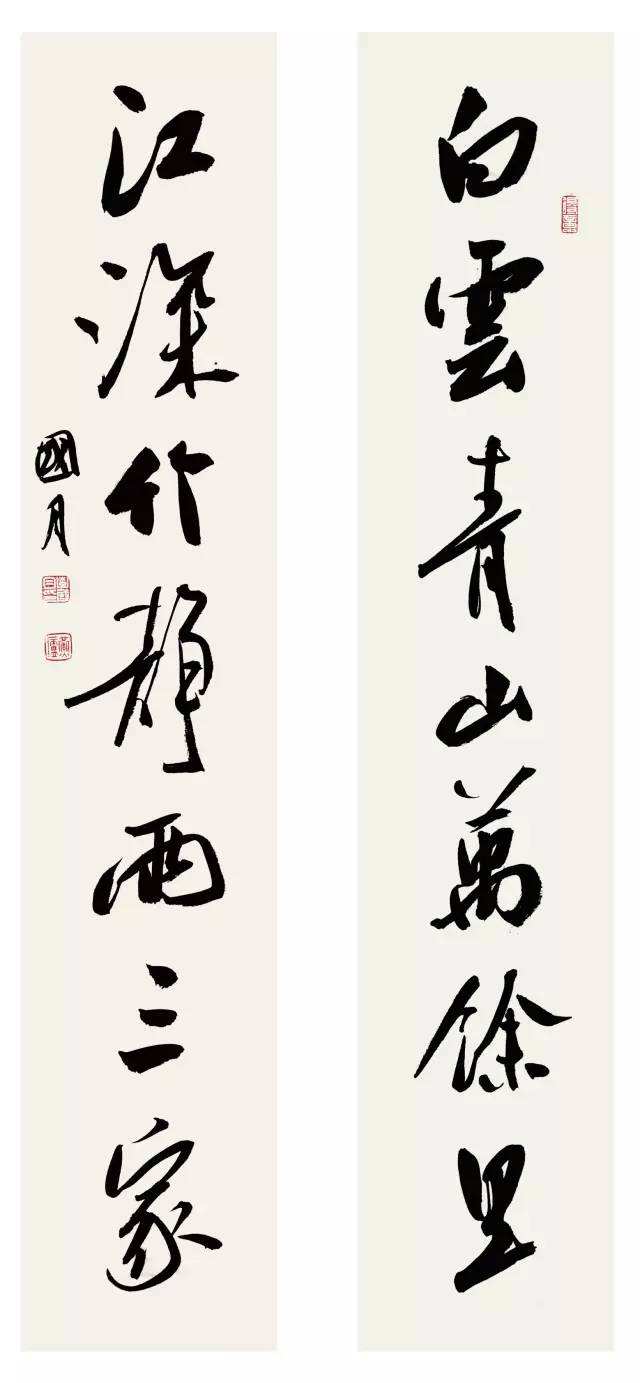 白雲青山萬餘里
江深竹靜兩三家
國月